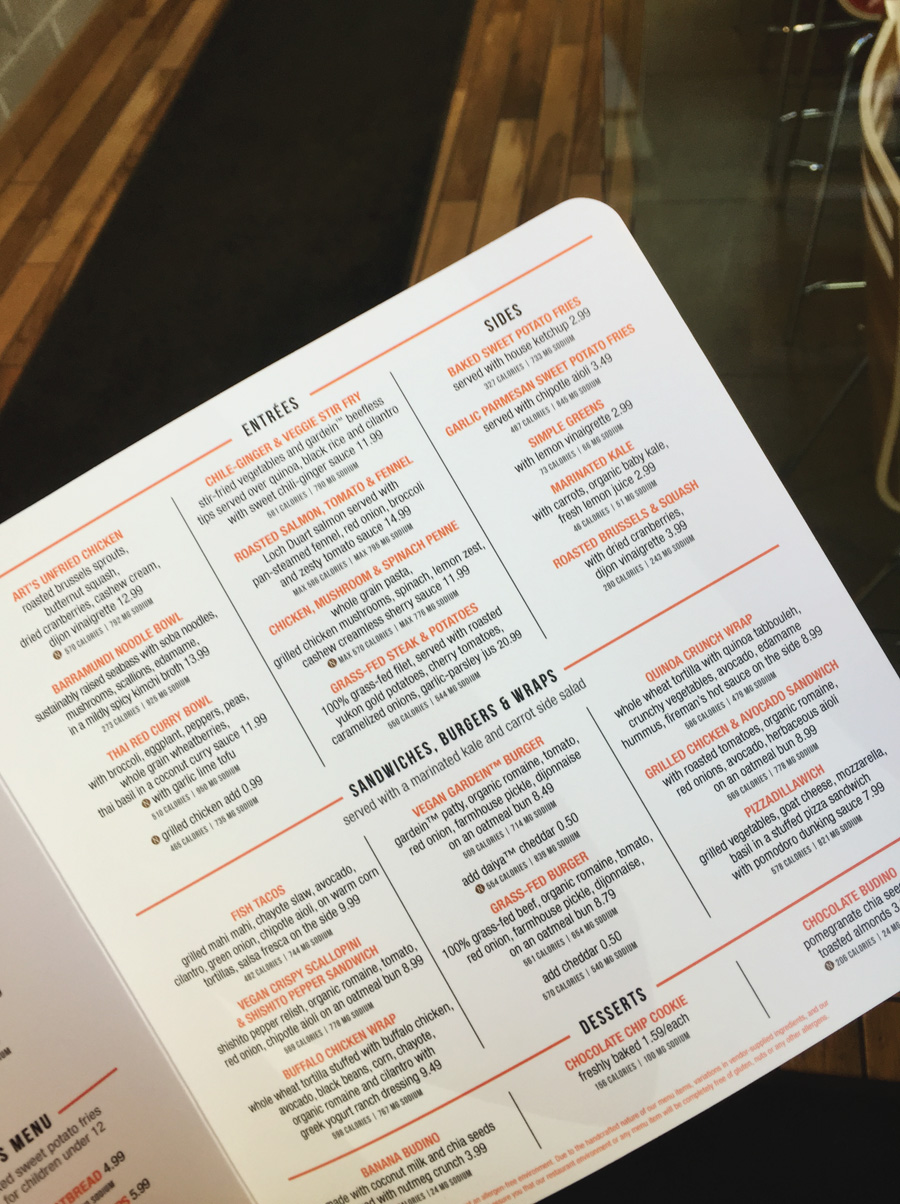 ENTRÉES
ART'S UNFRIED CHICKEN
roasted brussels sprouts,
butternut squash,
dried cranberries, cashew cream,
dijon vinaigrette 12.99
570 CALORIES | 792 MG SODIUM
BARRAMUNDI NOODLE BOWL
sustainably raised seabass with soba noodles,
mushrooms, scallions, edamame,
in a mildly spicy kimchi broth 13.99
273 CALORIES | 825 MG SODIUM
THAI RED CURRY BOWL
with broccoli, eggplant, peppers, peas,
whole grain wheatberries,
thai basil in a coconut curry sauce 11.99
with garlic lime tofu
510 CALORIES | 950 MG SODIUM
grilled chicken add 0.99
465 CALORIES | 736 MG SODIUM
CHILE-GINGER & VEGGIE STIR FRY
stir-fried vegetables and gardein™ beefless
tips served over quinoa, black rice and cilantro
with sweet chili-ginger sauce 11.99
581 CALORIES | 780 MG SODIUM
ROASTED SALMON, TOMATO & FENNEL
Loch Duart salmon served with
pan-steamed fennel, red onion, broccoli
and zesty tomato sauce 14.99
MAX 506 CALORIES | MAX 795 MG SODIUM
CHICKEN, MUSHROOM & SPINACH PENNE
whole grain pasta,
grilled chicken mushrooms, spinach, lemon zest,
cashew creamless sherry sauce 11.99
MAX 570 CALORIES | MAX 770 MG SODIUM
GRASS-FED STEAK & POTATOES
100% grass-fed filet, served with roasted
yukon gold potatoes, cherry tomatoes,
caramelized onions, garlic-parsley jus 20.99
550 CALORIES | 544 MG SODIUM
SIDES
BAKED SWEET POTATO FRIES
served with house ketchup 2.99
327 CALORIES | 733 MG SODIUM
GARLIC PARMESAN SWEET POTATO FRIES
served with chipotle aioli 3.49
487 CALORIES | 845 MG SODIUM
SIMPLE GREENS
with lemon vinaigrette 2.99
73 CALORIES | 66 MG SODIUM
MARINATED KALE
with carrots, organic baby kale,
fresh lemon juice 2.99
46 CALORIES | 51 MG SODIUM
ROASTED BRUSSELS & SQUASH
with dried cranberries,
dijon vinaigrette 3.99
290 CALORIES | 243 MG SODIUM
SANDWICHES, BURGERS & WRAPS
served with a marinated kale and carrot side salad
FISH TACOS
grilled mahi mahi, chayote slaw, avocado,
cilantro, green onion, chipotle aioli, on warm corn
tortillas, salsa fresca on the side 9.99
492 CALORIES | 744 MG SODIUM
VEGAN CRISPY SCALLOPINI
& SHISHITO PEPPER SANDWICH
shishito pepper relish, organic romaine, tomato,
red onion, chipotle aioli on an oatmeal bun 8.99
509 CALORIES | 778 MG SODIUM
BUFFALO CHICKEN WRAP
whole wheat tortilla stuffed with buffalo chicken,
avocado, black beans, corn, chayote,
organic romaine and cilantro with
greek yogurt ranch dressing 9.49
598 CALORIES | 767 MG SODIUM
VEGAN GARDEIN™ BURGER
gardein™ patty, organic romaine, tomato,
red onion, farmhouse pickle, dijonnaise
on an oatmeal bun 8.49
509 CALORIES | 714 MG SODIUM
add daiya™ cheddar 0.50
554 CALORIES | 839 MG SODIUM
GRASS-FED BURGER
100% grass-fed beef, organic romaine, tomato,
red onion, farmhouse pickle, dijonnaise,
on an oatmeal bun 8.79
561 CALORIES | 554 MG SODIUM
add cheddar 0.50
670 CALORIES | 540 MG SODIUM
QUINOA CRUNCH WRAP
whole wheat tortilla with quinoa tabbouleh,
crunchy vegetables, avocado, edamame
hummus, fireman's hot sauce on the side 8.99
596 CALORIES | 479 MG SODIUM
GRILLED CHICKEN & AVOCADO SANDWICH
with roasted tomatoes, organic romaine,
red onions, avocado, herbaceous aioli
on an oatmeal bun 8.99
569 CALORIES | 778 MG SODIUM
PIZZADILLAWICH
grilled vegetables, goat cheese, mozzarella,
basil in a stuffed pizza sandwich
with pomodoro dunking sauce 7.99
578 CALORIES | 821 MG SODIUM
DESSERTS
BANANA BUDINO
made with coconut milk and chia seeds
with nutmeg crunch 3.99
CALORIES | 24 MG SODIUM
CHOCOLATE CHIP COOKIE
freshly baked 1.59/each
166 CALORIES | 100 MG SODIUM
CHOCOLATE BUDINO
pomegranate chia
toasted almonds 3.
206 CALORIES | 24 MG
an allergen-free environment. Due to the handcrafted nature of our menu items, variations in vendor-supplied ingredients, and our
ensure you that our restaurant environment or any menu item will be completely free of gluten, nuts or any other allergens.
MENU
sweet potato fries
for children under 12
4.99
5.99